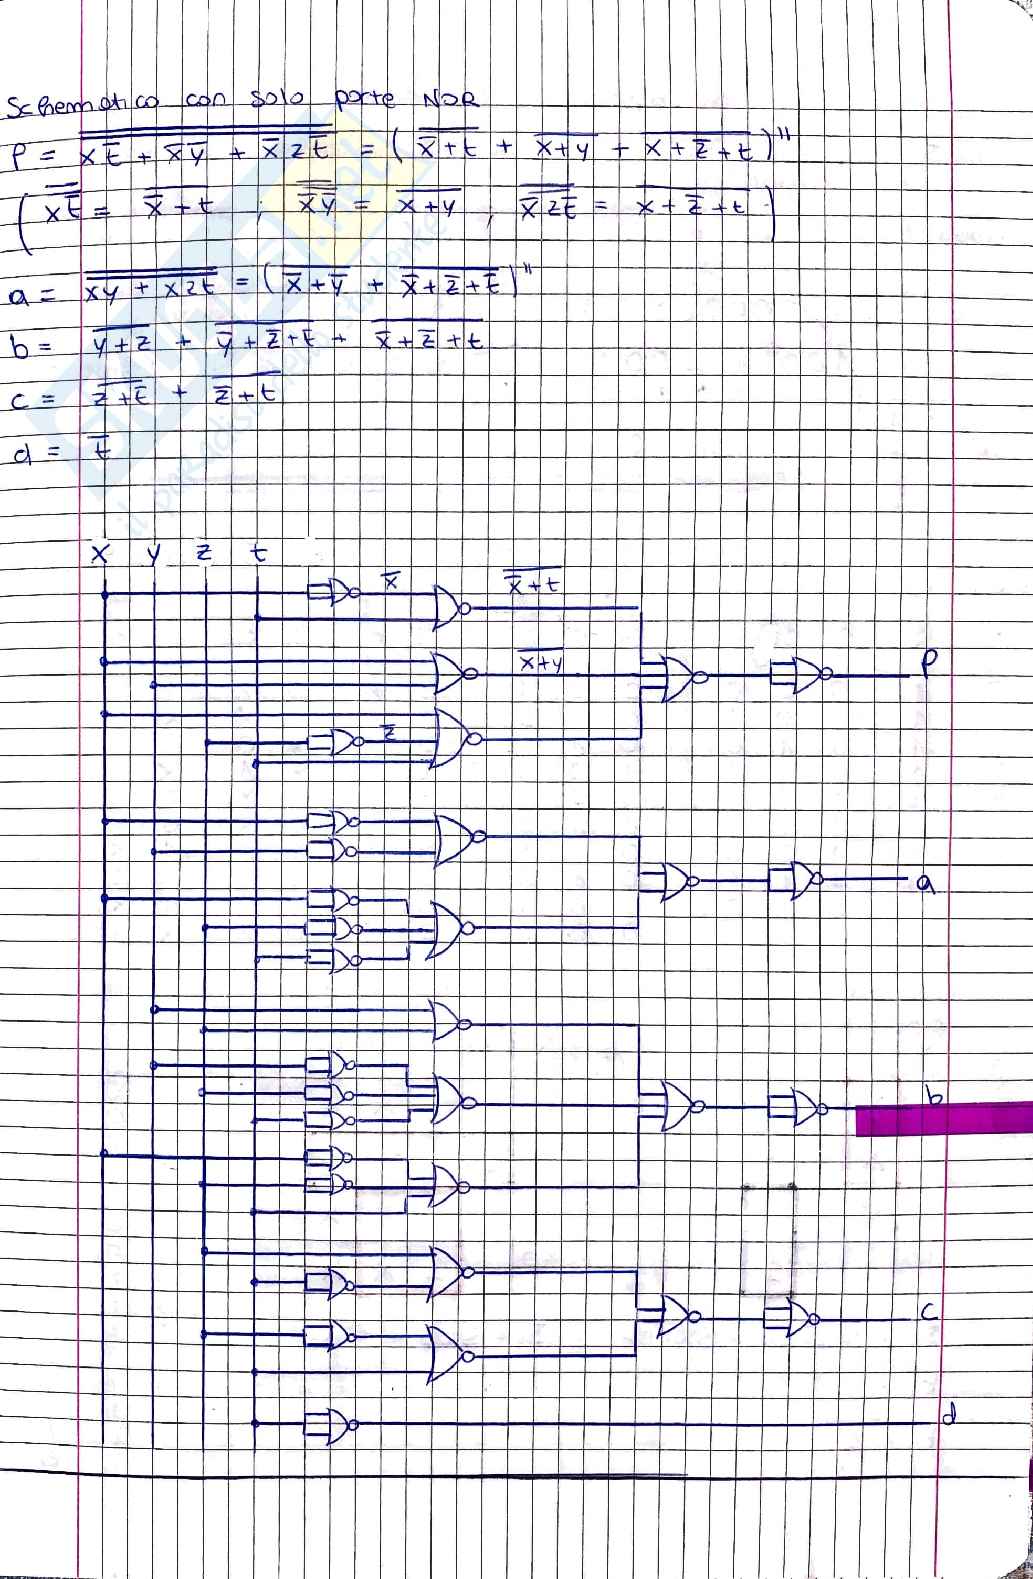 Schematico con solo porte NOR
P = x t̅ + x̅ y̅ + x̅ z t̅ = ( x̅ + t + x + y + x + z̅ + t )"
( x t̅ = x̅ + t ; x̅ y̅ = x + y ; x̅ z t̅ = x + z̅ + t )
a = xy + xzt = ( x̅ + y̅ + x̅ + z̅ + t̅ )"
b = y + z + y̅ + z̅ + t̅ + x̅ + z̅ + t
c = z + t̅ + z̅ + t
d = t̅
x y z t
x̅ x̅ + t
x + y P
z̅
a
b
c
d